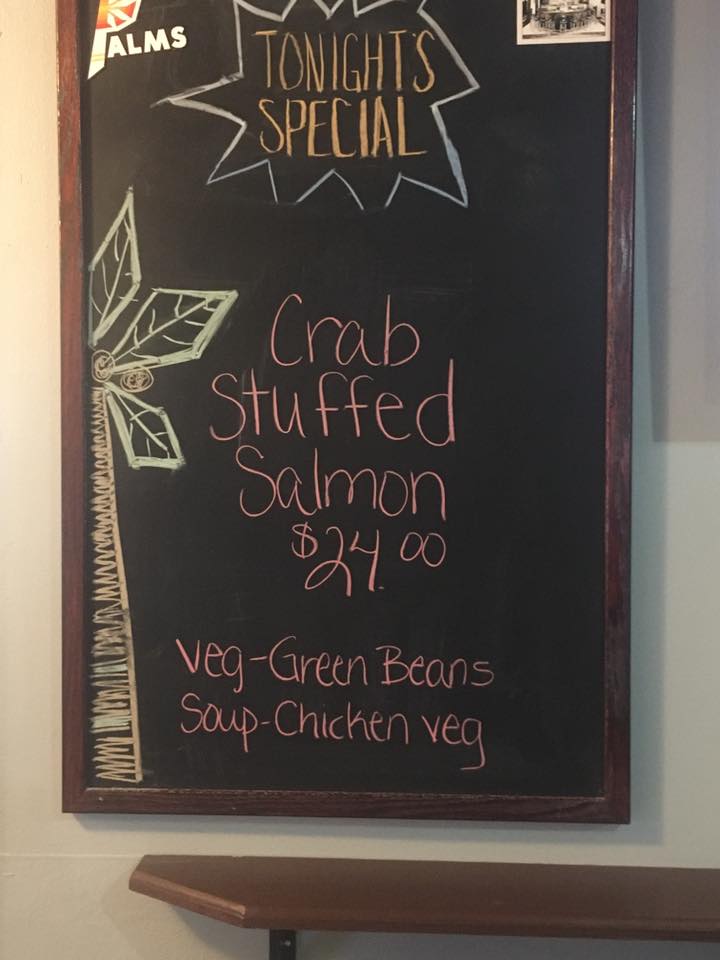 PALMS
TONIGHT'S
SPECIAL
Crab
Stuffed
Salmon
$24.00
Veg-Green Beans
Soup-Chicken veg